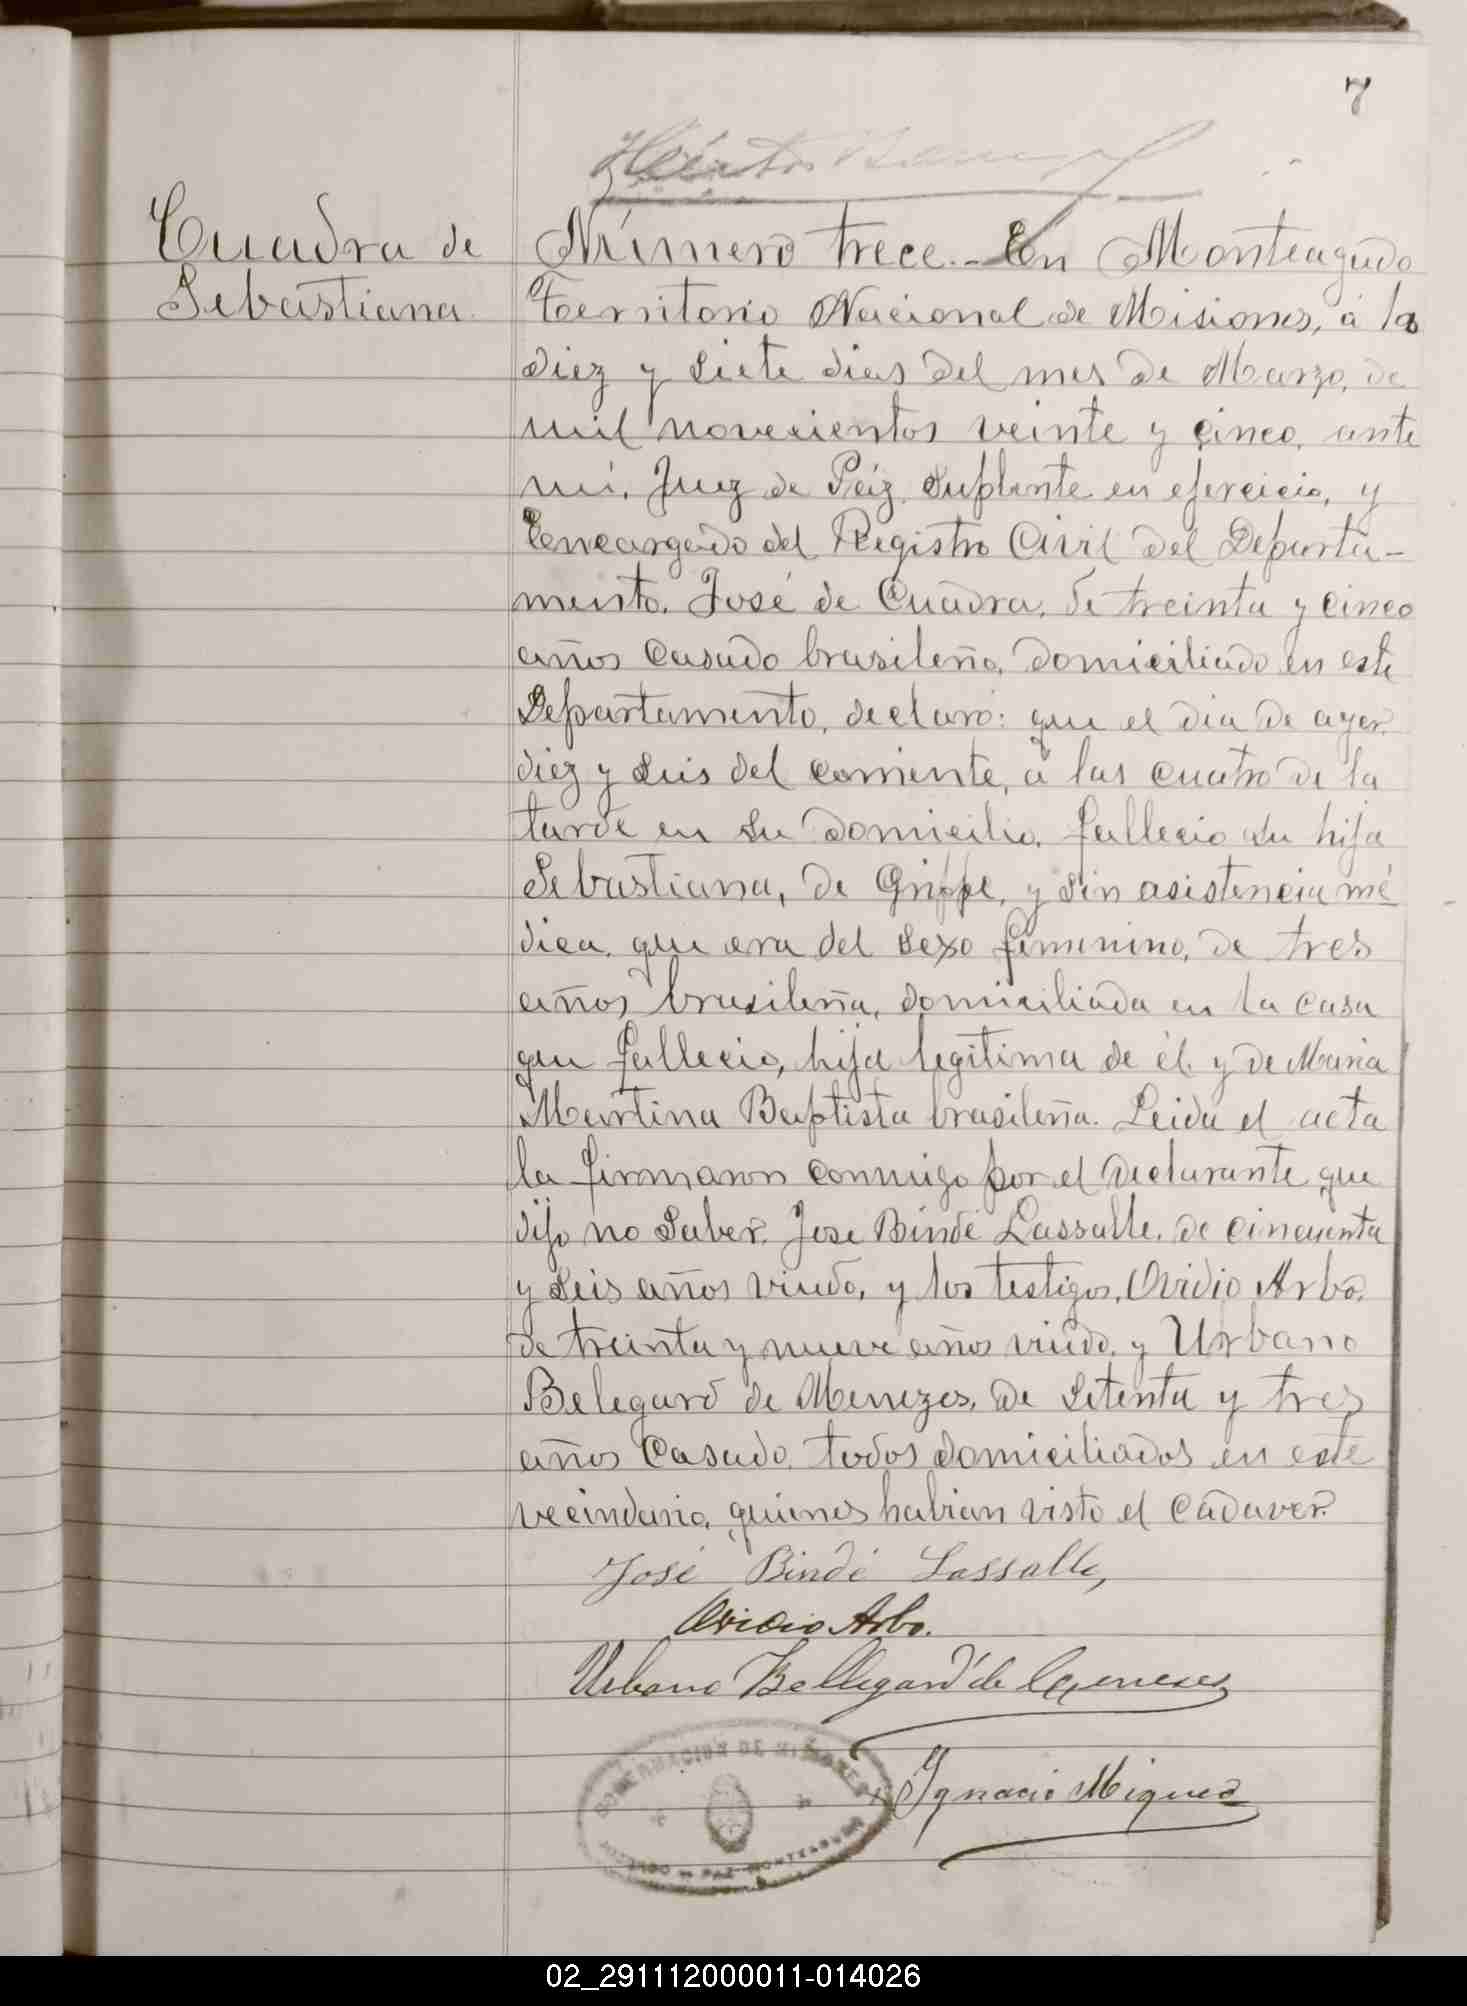 7
Cuadra de
Sebastiana.
Número trece.- En Monteagudo
Territorio Nacional de Misiones, á los
diez y siete dias del mes de Marzo, de
mil novecientos veinte y cinco, ante
mi, Juez de Páz Suplente en ejercicio, y
Encargado del Registro Civil del Departa-
mento, José de Cuadra, de treinta y cinco
años casado brasileño, domiciliado en este
Departamento, declaro: que el dia de ayer
diez y seis del corriente, a las cuatro de la
tarde en su domicilio, fallecio su hija
Sebastiana, de Grippe, y sin asistencia mé
dica, que era del sexo femenino, de tres
años brasileña, domiciliada en la casa
que fallecio, hija legitima de él y de Maria
Martina Baptista brasileña. Leida el acta
la firmaron conmigo por el declarante que
dijo no saber, Jose Bindé Lassalle, de cincuenta
y seis años viudo, y los testigos, Ovidio Arbo,
de treinta y nueve años viudo, y Urbano
Belegard de Menezes, de setenta y tres
años casado, todos domiciliados en este
vecindario, quienes habian visto el cadaver.
José Bindé Lassalle,
Ovidio Arbo.
Urbano Bellegard de Menezes
GOBERNACION DE MISIONES
Ignacio Miguez
02_291112000011-014026